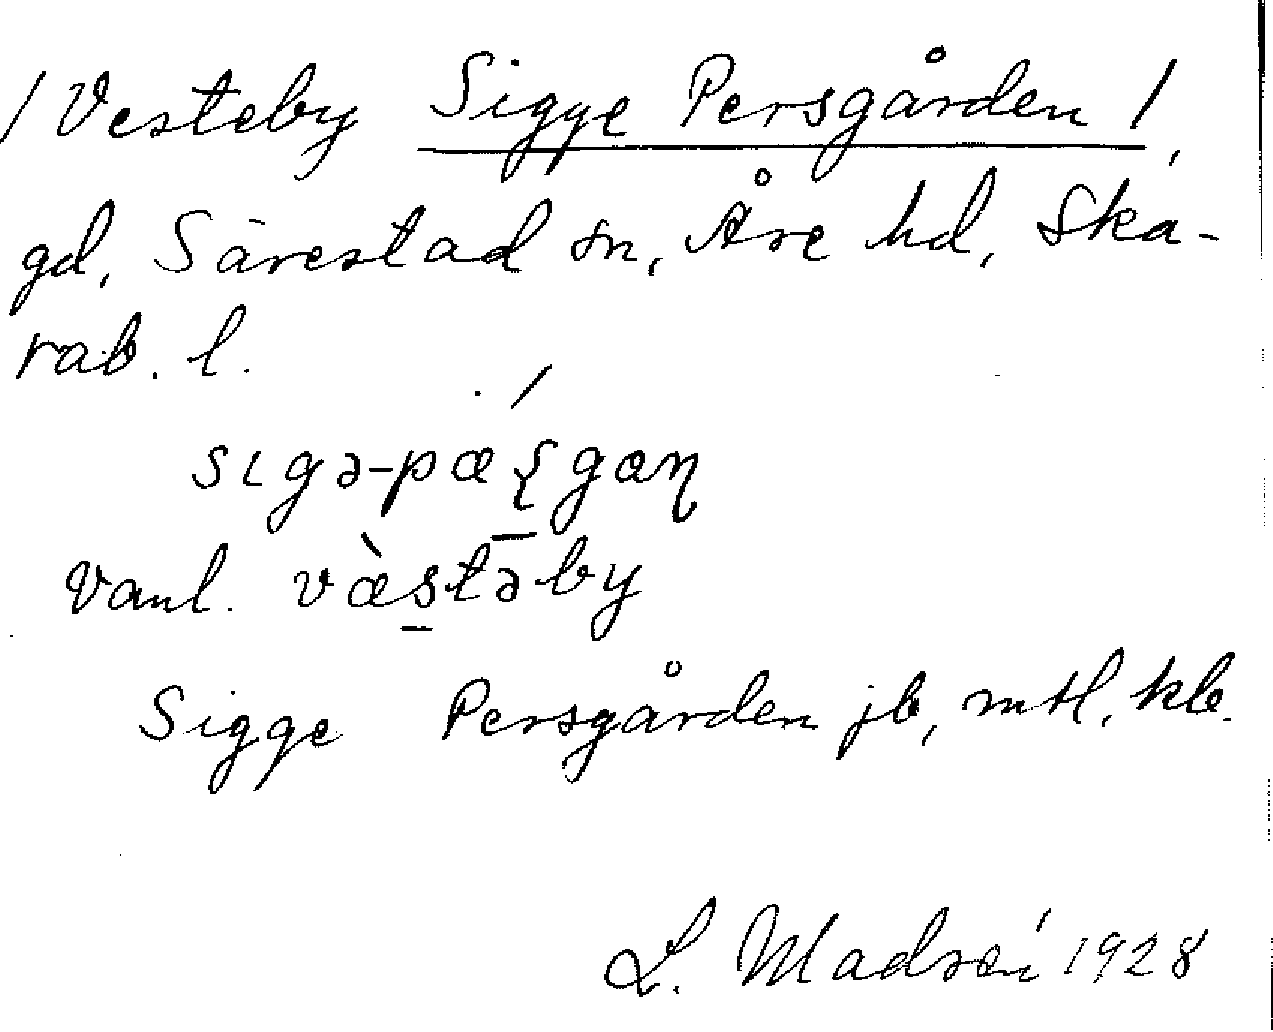 / Vesteby Sigge Persgården /,
gd, Särestad sn, Åre hd, Ska-
rab. l.
sɩgə-pǽʂgaɳ
Vanl. væ̀stəby
Sigge Persgården jb, mtl, kb.
L. Madsén 1928